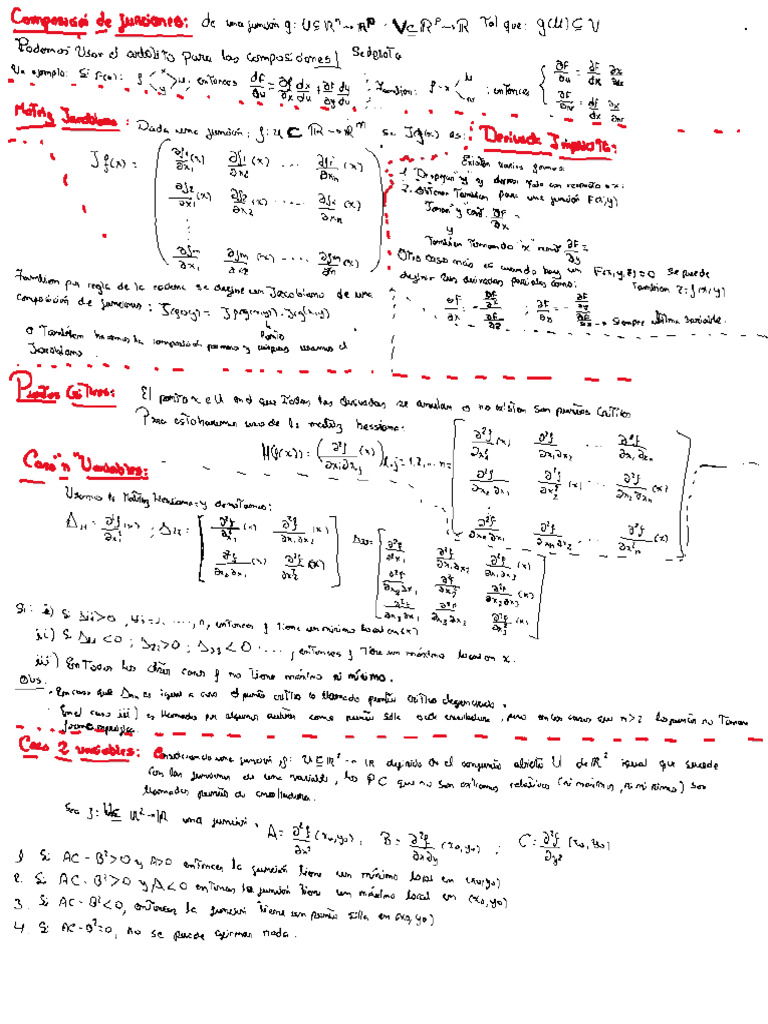 Composición de funciones: de una función g: U⊆ℝⁿ→ℝᵖ · V⊆ℝᵖ→ℝ Tal que: g(U)⊆V
Podemos usar el arbolito para las composiciones
Un ejemplo: Si f(u): f x y u, entonces ∂f/∂u = ∂f/∂x dx/du + ∂f/∂y dy/du ; También: f-x u v ; entonces { ∂f/∂u = df/dx ∂x/∂u
∂f/∂v = df/dx ∂x/∂v
Matriz Jacobiana: Dada una función; f: U ⊂ ℝⁿ→ℝᵐ su Jf(x) es:
Jf(x) = ( ∂f1/∂x1 (x) ∂f1/∂x2 (x) ... ∂f1/∂xn (x)
∂f2/∂x1 (x) ∂f2/∂x2 (x) ... ∂f2/∂xn (x)
∂fm/∂x1 (x) ∂fm/∂x2 (x) ... ∂fm/∂xn (x) )
También por regla de la cadena se define un Jacobiano de una
composición de funciones:
Punto
o También hacemos la composición primero y después usamos el
Jacobiano.
Derivada Implícita:
Existen varias formas:
1. Despejar "y" y derivar todo con respecto a x.
2. Obtener También para una función F(x,y)
Tomar "y" const. ∂F/∂x =
y
También Tomando "x" const ∂F/∂y =
Otro caso más es cuando hay un F(x,y,z)=0 se puede
definir sus derivadas parciales como: También z=f(x,y)
∂f/∂x = - ∂F/∂x / ∂F/∂z ; ∂f/∂y = - ∂F/∂y / ∂F/∂z → Siempre última variable.
Puntos Críticos: El punto x∈U en el que todas las derivadas se anulan o no existan son puntos críticos
Para esto haremos uso de la matriz hessiana:
H(f(x)) = ( ∂²f/∂xi∂xj (x) ) i,j=1,2,...n = [ ∂²f/∂x1² (x) ∂²f/∂x1∂x2 ... ∂²f/∂x1∂xn
∂²f/∂x2∂x1 ∂²f/∂x2² (x) ... ∂²f/∂x2∂xn (x)
∂²f/∂xn∂x1 ∂²f/∂xn∂x2 ... ∂²f/∂x²n (x) ]
Caso "n" Variables:
Usamos la Matriz Hessiana y denotamos:
Δ11 = ∂²f/∂x1² (x) ; Δ22 = [ ∂²f/∂x1² (x) ∂²f/∂x1∂x2 (x)
∂²f/∂x2∂x1 (x) ∂²f/∂x2² (x) ]
Δ33 = [ ∂²f/∂x1² ∂²f/∂x1∂x2 ∂²f/∂x1∂x3 (x)
∂²f/∂x2∂x1 ∂²f/∂x2² ∂²f/∂x2∂x3 (x)
∂²f/∂x3∂x1 ∂²f/∂x3∂x2 ∂²f/∂x3² (x) ]
Si: i) Si Δii>0, ∀i=1,...,n, entonces f tiene un mínimo local en (x)
ii) Si Δ11<0 ; Δ22>0 ; Δ33<0 ...., entonces f Tiene un máximo local en x.
iii) En Todos los otros casos f no tiene máximo ni mínimo.
Obs.
· En caso que Δnn es igual a cero el punto crítico es llamado punto crítico degenerado.
· En el caso iii) es llamado por algunos autores como punto silla o de ensilladura, pero en los casos que n>2 los puntos no Tienen
forma específica.
Caso 2 variables: Considerando una función f: U⊆ℝ²→ℝ definida en el conjunto abierto U de ℝ² igual que sucede
con las funciones de una variable, los PC que no son extremos relativos (ni máximos, ni mínimos) son
llamados puntos de ensilladura.
Sea f: U⊆ℝ²→ℝ una función. A = ∂²f/∂x² (x0,y0) ; B = ∂²f/∂x∂y (x0,y0) ; C = ∂²f/∂y² (x0,y0)
1. Si AC-B²>0 y A>0 entonces la función tiene un mínimo local en (x0,y0)
2. Si AC-B²>0 y A<0 entonces la función tiene un máximo local en (x0,y0)
3. Si AC-B²<0, entonces la función tiene un punto silla en (x0,y0)
4 Si AC-B²=0, no se puede afirmar nada.